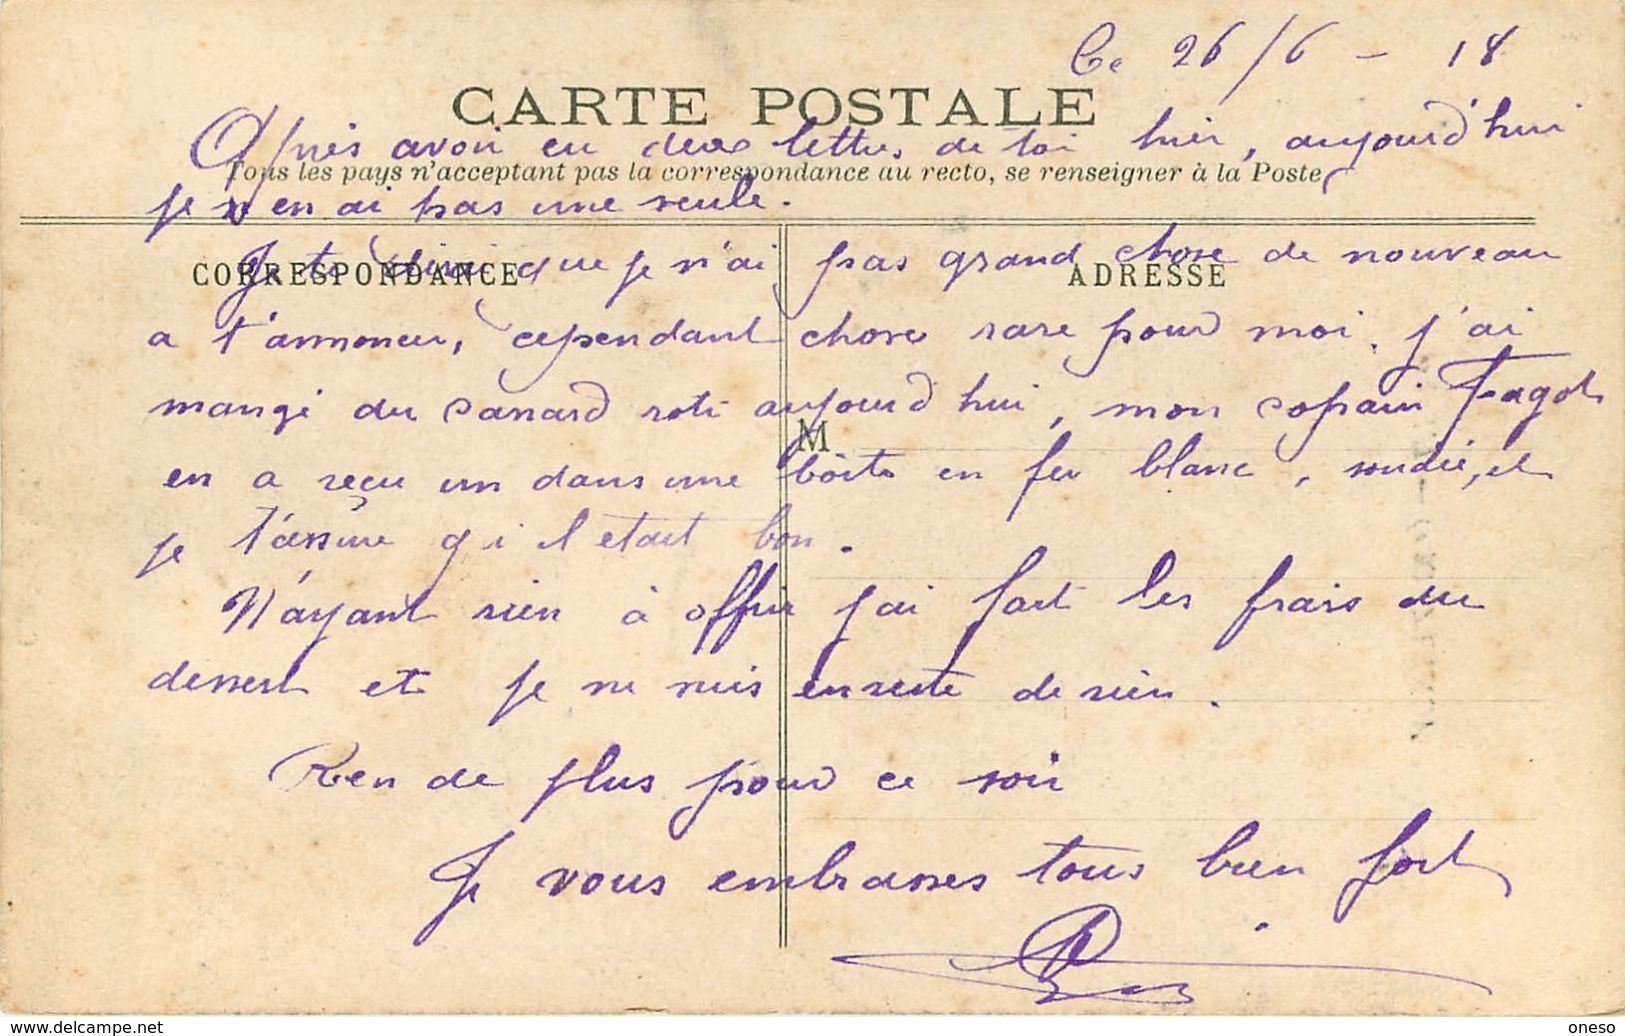 Ce 26/6 - 18
CARTE POSTALE
Après avoir eu deux lettres de toi hier, aujourd'hui
Tous les pays n'acceptant pas la correspondance au recto, se renseigner à la Poste
je n'en ai pas une seule.
Je te dirai que je n'ai pas grand chose de nouveau
CORRESPONDANCE
ADRESSE
a t'annoncer, cependant chose rare pour moi, j'ai
mangé du canard roti aujourd'hui, mon copain Fagot
M
en a reçu un dans une boîte en fer blanc, soudée, et
je t'assure qi il etait bon.
N'ayant rien à offrir j'ai fait les frais du
dessert et je ne suis en reste de rien.
Rien de plus pour ce soir
Je vous embrasses tous bien fort
www.delcampe.net
oneso